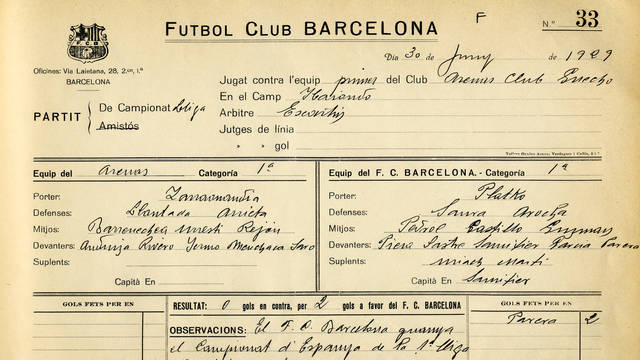 F C B
FUTBOL CLUB BARCELONA
F
N.º 33
Oficines: Via Laietana, 28, 2.on, 1.ª
BARCELONA
Dia 30 de Juny de 1929
Jugat contra l'equip primer del Club Arenas Club Guecho
En el Camp Ibaiondo
PARTIT
De Campionat Lliga
Amistós
Arbitre Escartín
Jutges de línia
" " gol
Equip del Arenas Categoría 1ª
Porter: Zarraonandia
Defenses: Llantada Arrieta
Mitjos: Barrenechea Urresti Rejón
Devanters: Anduiza Rivero Yermo Menchaca Saro
Suplents:
Capità En
Equip del F. C. BARCELONA. - Categoría 1ª
Porter: Platko
Defenses: Saura Arocha
Mitjos: Castillo Guzman
Devanters: Piera Sastre Samitier Garcia Parera
Suplents: Martí
Capità En Samitier
GOLS FETS PER EN
RESULTAT: 0 gols en contra, per 2 gols a favor del F. C. BARCELONA
GOLS FETS PER EN
Parera 2
OBSERVACIONS: El F. C. Barcelona guanya
el Campionat d'Espanya de la 1ª Lliga